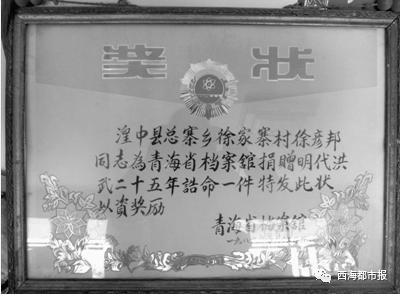 奖状
湟中县总寨乡徐家寨村徐彦邦
同志為青海省档案舘捐贈明代洪
武二十五年誥命一件特发此状
以資奖励
青海省档案舘
一九八
西海都市报